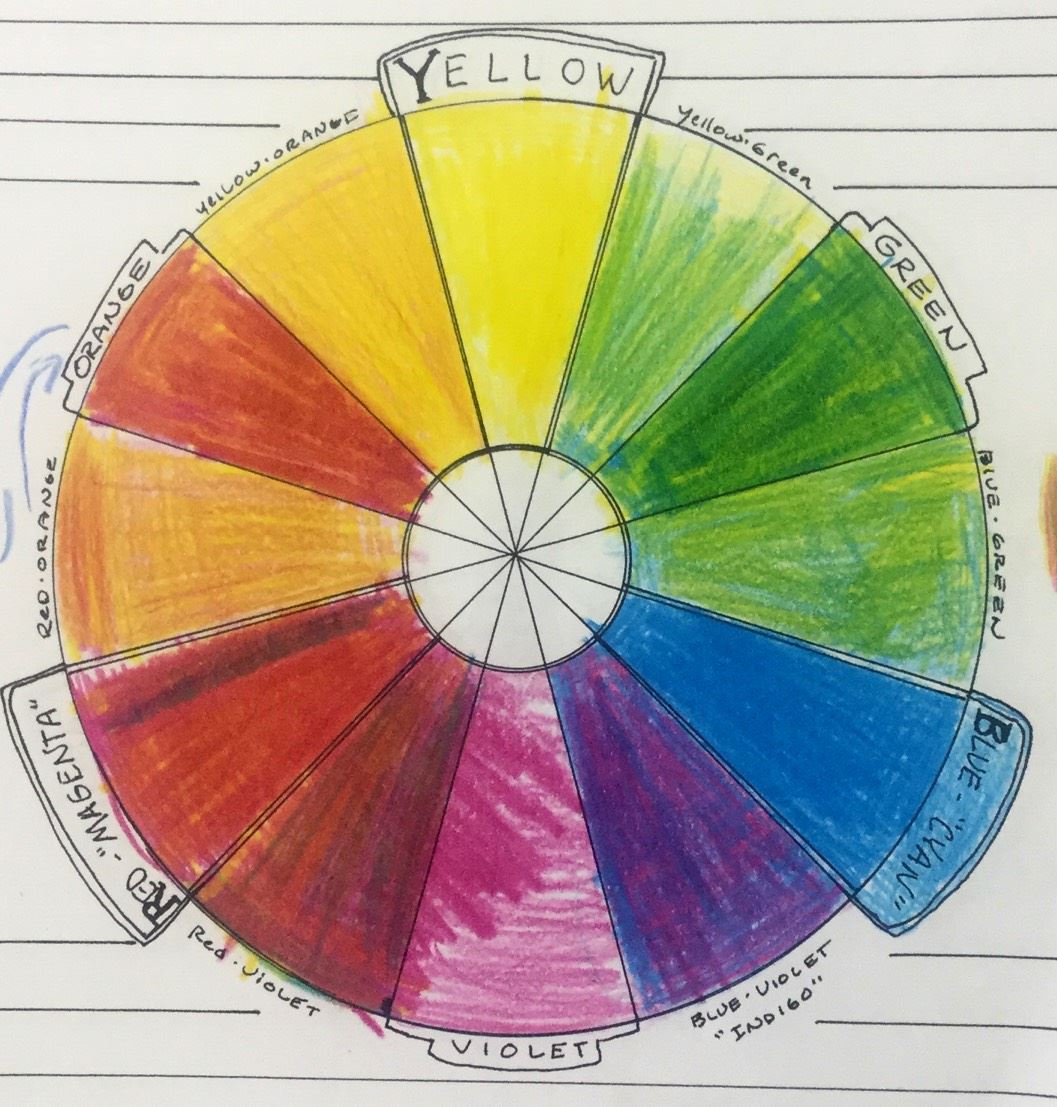 YELLOW
Yellow·Green
GREEN
BLUE·GREEN
BLUE-"CYAN"
BLUE·VIOLET
"INDIGO"
VIOLET
Red·VIOLET
RED-"MAGENTA"
RED·ORANGE
ORANGE
YELLOW·ORANGE